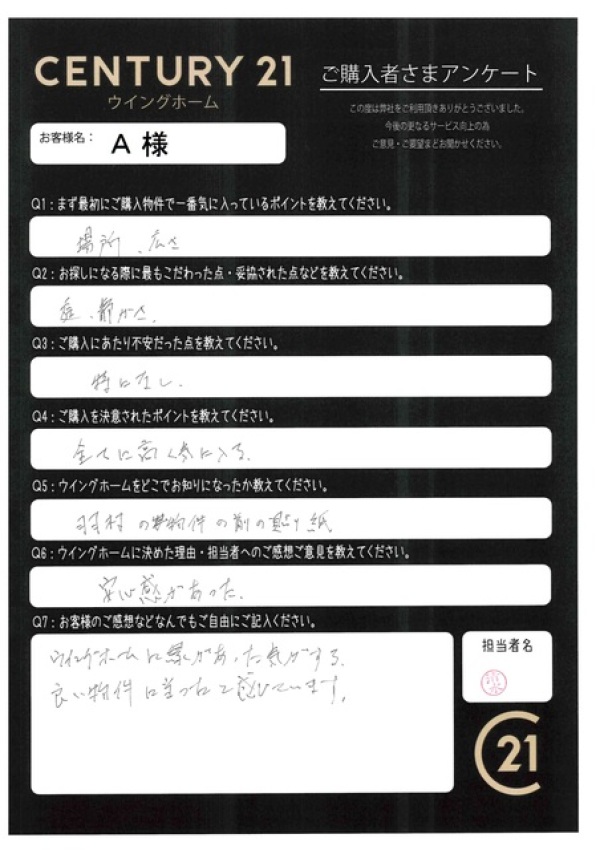 CENTURY 21
ウイングホーム
ご購入者さまアンケート
この度は弊社をご利用頂きありがとうございました。
今後の更なるサービス向上の為
ご意見・ご要望までお聞かせください。
お客様名: A 様
Q1:まず最初にご購入物件で一番気に入っているポイントを教えてください。
場所、広さ
Q2:お探しになる際に最もこだわった点・妥協された点などを教えてください。
庭、静かさ、
Q3:ご購入にあたり不安だった点を教えてください。
特になし.
Q4:ご購入を決意されたポイントを教えてください。
全てに
Q5:ウイングホームをどこでお知りになったか教えてください。
羽村の物件の前の貼り紙
Q6:ウイングホームに決めた理由・担当者へのご感想ご意見を教えてください。
安心感があった.
Q7:お客様のご感想などなんでもご自由にご記入ください。
ウイングホームに縁があった気がする.
良い物件に
担当者名
21